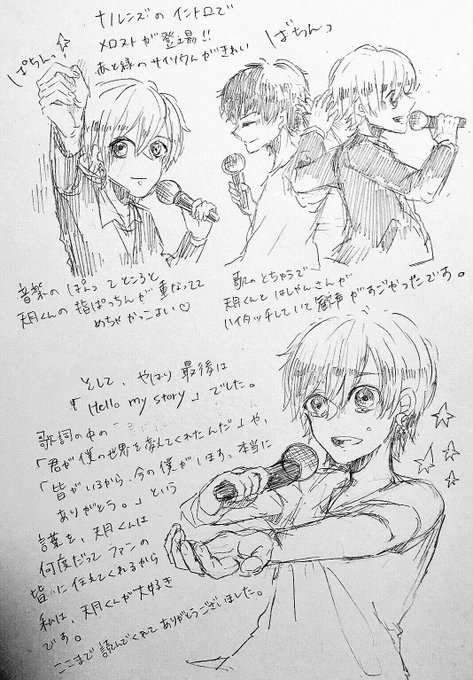 ナルシズの イントロで
メロストが登場!!
赤と緑のサイリウムがきれい
ぱちんっ
ばちんっ
音楽の ぱんってところと
天月くんの 指ぱっちんが 重なってて
めちゃかっこよい♡
歌のとちゅうで
天月くんと はしやんさんが
ハイタッチしていて歓声がすごかったです。
そして、やはり最後は
「Hello my story」でした。
歌詞の中の
「君が僕の世界を変えてくれたんだ」や、
「皆がいるから、今の僕がいます。本当に
ありがとう。」という
言葉を、天月くんは
何度だって ファンの
皆に伝えてくれるから
私は、天月くんが大好き
です。
ここまで読んでくれてありがとうございました。